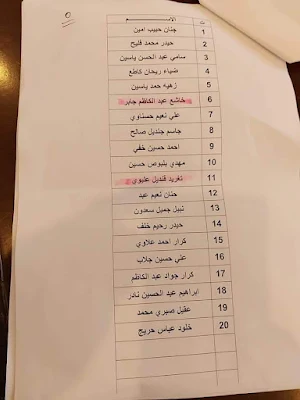 ت الاســـم
1 جنان حبيب امين
2 حيدر محمد فليح
3 سامي عبد الحسن ياسين
4 ضياء ريحان كاطع
5 زهيه حمد ياسين
6 خاشع عبد الكاظم جابر
7 علي نعيم حسناوي
8 جاسم جنديل صالح
9 احمد حسين خفي
10 مهدي بلبوص حسين
11 تغريد قنديل عليوي
12 حنان نعيم عبد
13 نبيل جميل سعدون
14 حيدر رحيم خلف
15 كرار احمد علاوي
16 علي حسين جلاب
17 كرار جواد عبد الكاظم
18 ابراهيم عبد الحسين نادر
19 عقيل صبري محمد
20 خلود عباس حريج